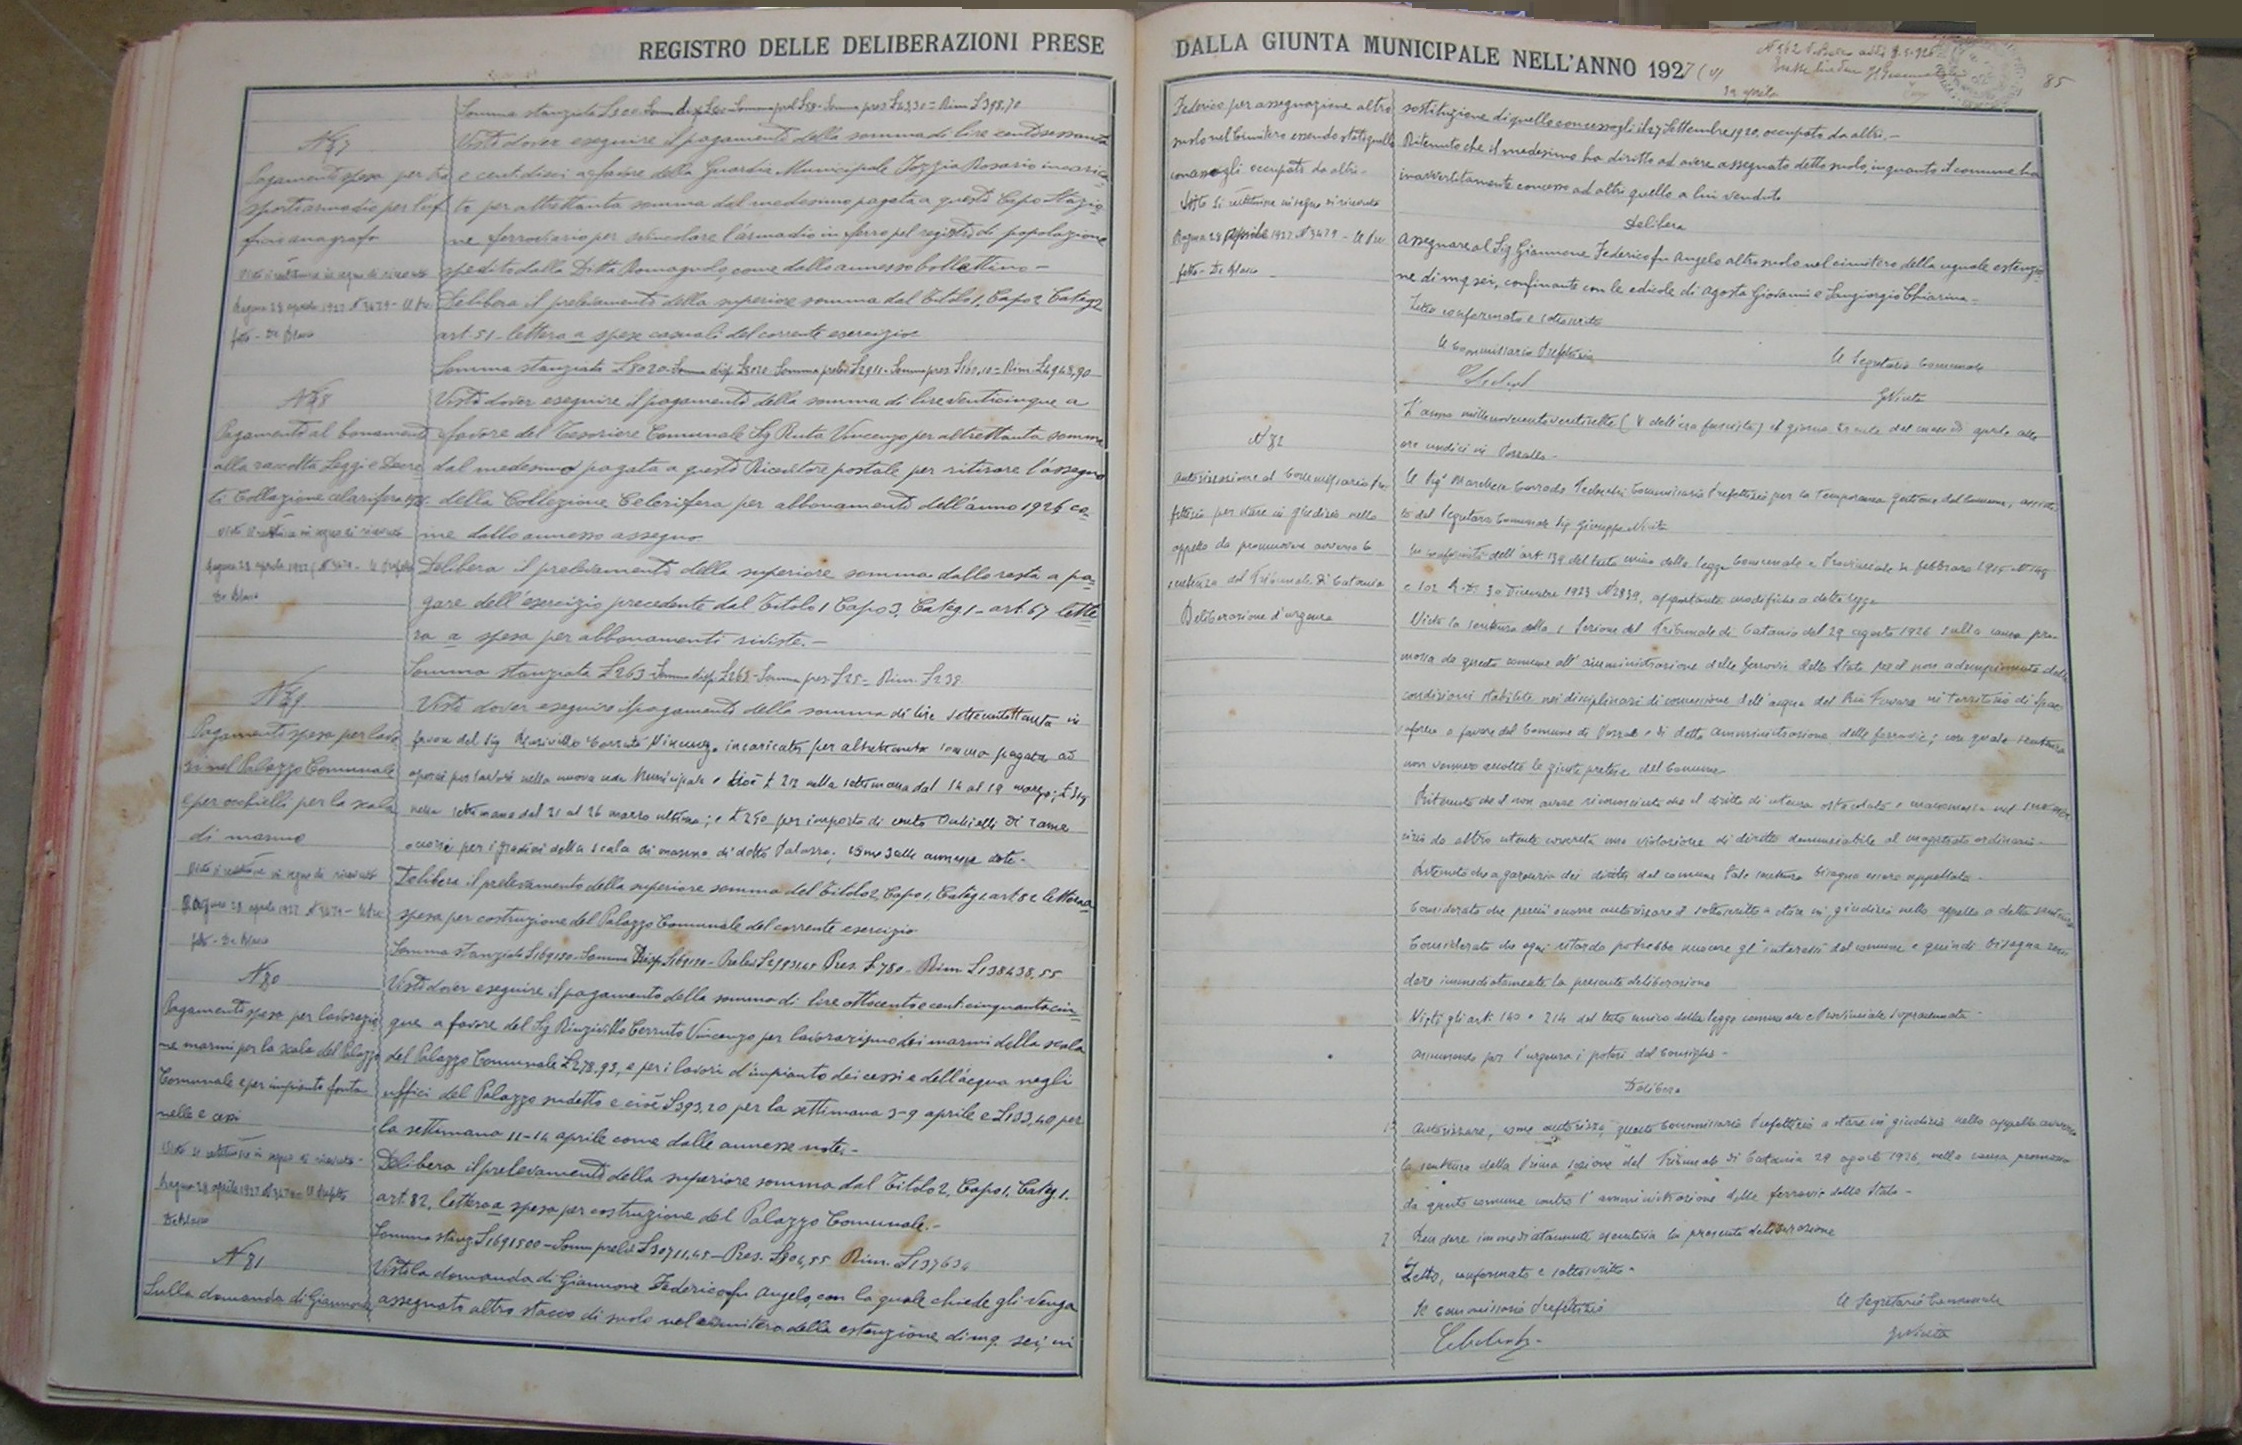 REGISTRO DELLE DELIBERAZIONI PRESE
Somma stanziata L500
N 77
Pagamento spesa per tra
sporto armadio per l'uf
ficio anagrafe
Visto si restituisce in segno di ricevuto
Ragusa 28 aprile 1927 N 3479 - Il Pre.
fetto - De Blasio
Visto dover eseguire il pagamento della somma di lire centosessanta
e cent. dieci a favore della Guardia Municipale Rosario incarica
to per altrettanta somma dal medesimo pagata a questo Capo Stazio
ne ferroviario per svincolare l'armadio in ferro pel registro di popolazione
spedito dalla Ditta Romagnolo, come dallo annesso bollettino -
Delibera il prelevamento della superiore somma dal Titolo 1, Capo 2 Categ 2
art. 51 - lettera a spese casuali del corrente esercizio
Somma stanziata L 8020 - Somma disp. L8020 - Somma prelev L2911 - Somma pres L160,10 = Rim. L4948,90
N 78
Pagamento abbonamento
alla raccolta Leggi e Decre
ti Collezione celerifera 1926.
Visto si restituisce in segno di ricevuto
Ragusa 28 aprile 1927 N 3479 - Il Prefetto
De Blasio
Visto dover eseguire il pagamento della somma di lire venticinque a
favore del Tesoriere Comunale Sig Ruta Vincenzo per altrettanta somma
dal medesimo pagata a questo Ricevitore postale per ritirare l'assegno
della Collezione Celerifera per abbonamento dell'anno 1926 co-
me dallo annesso assegno
Delibera il prelevamento della superiore somma dallo resta a pa-
gare dell'esercizio precedente dal Titolo 1 Capo 3, Categ 1 - art. 67 lette
ra a spesa per abbonamenti riviste. -
Somma stanziata L263 - Somma disp. L263 - Somma pres L25 - Rim. L238
N 79
Pagamento spesa per lavo
ri nel Palazzo Comunale
e per occhielli per la scala
di marmo
Visto si restituisce in segno di ricevuto
Ragusa 28 aprile 1927 N 3479 - Il Pre
fetto - De Blasio
Visto dover eseguire il pagamento della somma di lire settecentottanta in
favore del Sig Cerruto Vincenzo incaricato per altrettanta somma pagata ad
operai per lavori nella nuova sede Municipale e cioè L 212 nella settimana dal 14 al 19 marzo;
nella settimana dal 21 al 26 marzo ultimo; e L 250 per importo di cento occhielli di rame
per i gradini della scala di marmo di detto Palazzo; come dalle annesse note -
Delibera il prelevamento della superiore somma dal Titolo 2, Capo 1, Categ 1 art 82 lettera a
spesa per costruzione del Palazzo Comunale del corrente esercizio
Pres. L 780 - Rim. L138438,55
N 80
Pagamento spesa per lavorazio
ne marmi per la scala del Palazzo
Comunale e per impianto fonta
nelle e cessi
Visto si restituisce in segno di ricevuto -
Ragusa 28 aprile 1927 N 3479 - Il Prefetto
De Blasio
Visto dover eseguire il pagamento della somma di lire ottocento e cent. cinquantacin-
que a favore del Sig Cerruto Vincenzo per lavorazione dei marmi della scala
del Palazzo Comunale L278,93, e per i lavori d'impianto dei cessi e dell'acqua negli
uffici del Palazzo sudetto e cioè L393,20 per la settimana 3-9 aprile e L133,40 per
la settimana 11-14 aprile come dalle annesse note. -
Delibera il prelevamento della superiore somma dal Titolo 2, Capo 1, Categ 1.
art. 82, lettera a spesa per costruzione del Palazzo Comunale. -
Somma prelev L30711,45 - Pres. L804,55 Rim. L137634
N 81
Sulla domanda di Giannone
Vista la domanda di Giannone Federico fu Angelo, con la quale chiede gli venga
assegnato altro stacco di suolo nel cimitero della estenzione di mq. sei, in
DALLA GIUNTA MUNICIPALE NELL'ANNO 1927 (V)
85
Federico per assegnazione altro
suolo nel Cimitero essendo stato quello
concessogli occupato da altri. -
Visto si restituisce in segno di ricevuto
Ragusa 28 Aprile 1927 N 3479 - Il Pre
fetto - De Blasio -
sostituzione di quello concessogli il 27 Settembre 1920, occupato da altri. -
Ritenuto che il medesimo ha diritto ad avere assegnato detto suolo, inquanto il comune ha
inavvertitamente concesso ad altri quello a lui venduto
Delibera
assegnare al Sig Giannone Federico fu Angelo altro suolo nel cimitero della uguale estenzio
ne di mq sei, confinante con le edicole di Agosta Giovanni e Sangiorgio Chiarina -
Letto confermato e sottoscritto
Il Commissario Prefettizio
Il Segretario Comunale
N 82
Autorizzazione al Commissario Pre
fettizio per stare in giudizio nello
appello da promuovere avverso la
sentenza del Tribunale di Catania
Deliberazione d'urgenza
L'anno millenovecentoventisette (V dell'era fascista) il giorno trenta del mese di aprile alle
ore undici in Pozzallo -
Il Sig. Marchese Corrado Tedeschi Commissario Prefettizio per la temporanea gestione del Comune, assisti
to dal Segretario Comunale Sig Giuseppe Nicita
In conformità dell'art 139 del testo unico della legge Comunale e Provinciale 4 febbraio 1915 N 148
e 102 R.D. 30 Dicembre 1923 N 2839, apportante modifiche a detta legge
Vista la sentenza della 1 Sezione del Tribunale di Catania del 29 agosto 1926 sulla causa pro-
mossa da questo comune all'amministrazione delle ferrovie dello Stato pel non adempimento delle
condizioni stabilite nei disciplinari di concessione dell'acqua del Rio Favara in territorio di Spac
caforno a favore del Comune di Pozzallo e di detta amministrazione delle ferrovie; con quale sentenza
non vennero accolte le giuste pretese del Comune
Ritenuto che il non avere riconosciuto che il diritto di utenza ostacolato e
da altro utente concreta una violazione di diritto denunciabile al magistrato ordinario. -
Ritenuto che a garanzia dei diritti del comune tale sentenza bisogna essere appellata -
Considerato che perciò occorre autorizzare il sottoscritto a stare in giudizio nello appello a detta sentenza
Considerato che ogni ritardo potrebbe nuocere gl'interessi del comune e quindi bisogna ren
dere immediatamente la presente deliberazione
Visto gli arti. 140 e 214 del testo unico della legge comunale e Provinciale sopracennata -
assumendo per l'urgenza i poteri del Consiglio -
Delibera
1° Autorizzare, come autorizza, questo Commissario Prefettizio a stare in giudizio nello appello avverso
la sentenza della Prima sezione del Tribunale di Catania 29 agosto 1926, nella causa promossa
da questo comune contro l'amministrazione delle ferrovie dello Stato -
2 Rendere immediatamente esecutiva la presente deliberazione
Letto, confermato e sottoscritto -
Il Commissario Prefettizio
Il Segretario Comunale